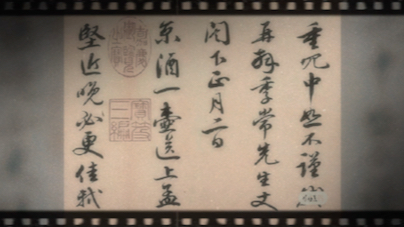 重冗中恕不謹軾
再拜季常先生丈
閣下正月二日
京酒一壺送上孟
堅近晚必更佳軾